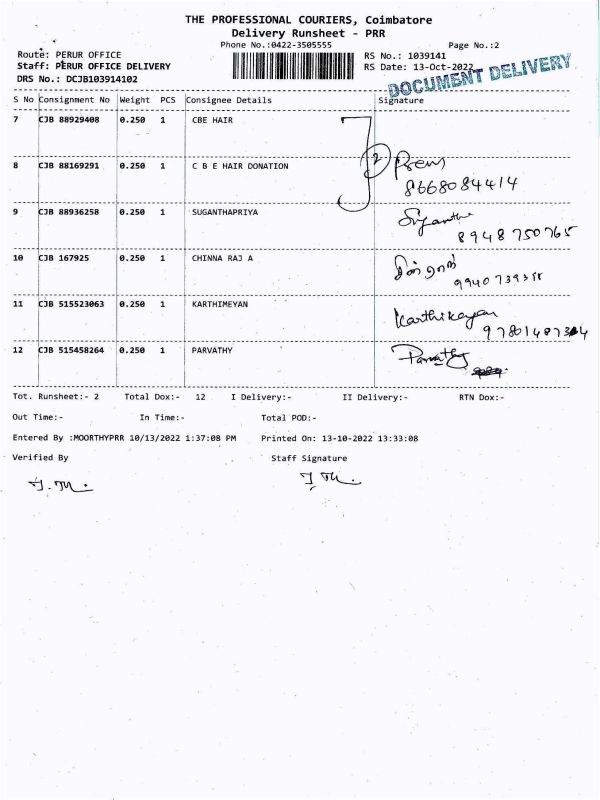 THE PROFESSIONAL COURIERS, Coimbatore
Delivery Runsheet - PRR
Phone No.:0422-3505555 Page No.:2
Route: PERUR OFFICE RS No.: 1039141
Staff: PERUR OFFICE DELIVERY RS Date: 13-Oct-2022
DRS No.: DCJB103914102
DOCUMENT DELIVERY
S No Consignment No Weight PCS Consignee Details Signature
7 CJB 88929408 0.250 1 CBE HAIR
8 CJB 88169291 0.250 1 C B E HAIR DONATION 2 Prem
8668084414
9 CJB 88936258 0.250 1 SUGANTHAPRIYA
8948750765
10 CJB 167925 0.250 1 CHINNA RAJ A
11 CJB 515523063 0.250 1 KARTHIMEYAN Karthikeyan
12 CJB 515458264 0.250 1 PARVATHY Parvathy
Tot. Runsheet:- 2 Total Dox:- 12 I Delivery:- II Delivery:- RTN Dox:-
Out Time:- In Time:- Total POD:-
Entered By :MOORTHYPRR 10/13/2022 1:37:08 PM Printed On: 13-10-2022 13:33:08
Verified By Staff Signature